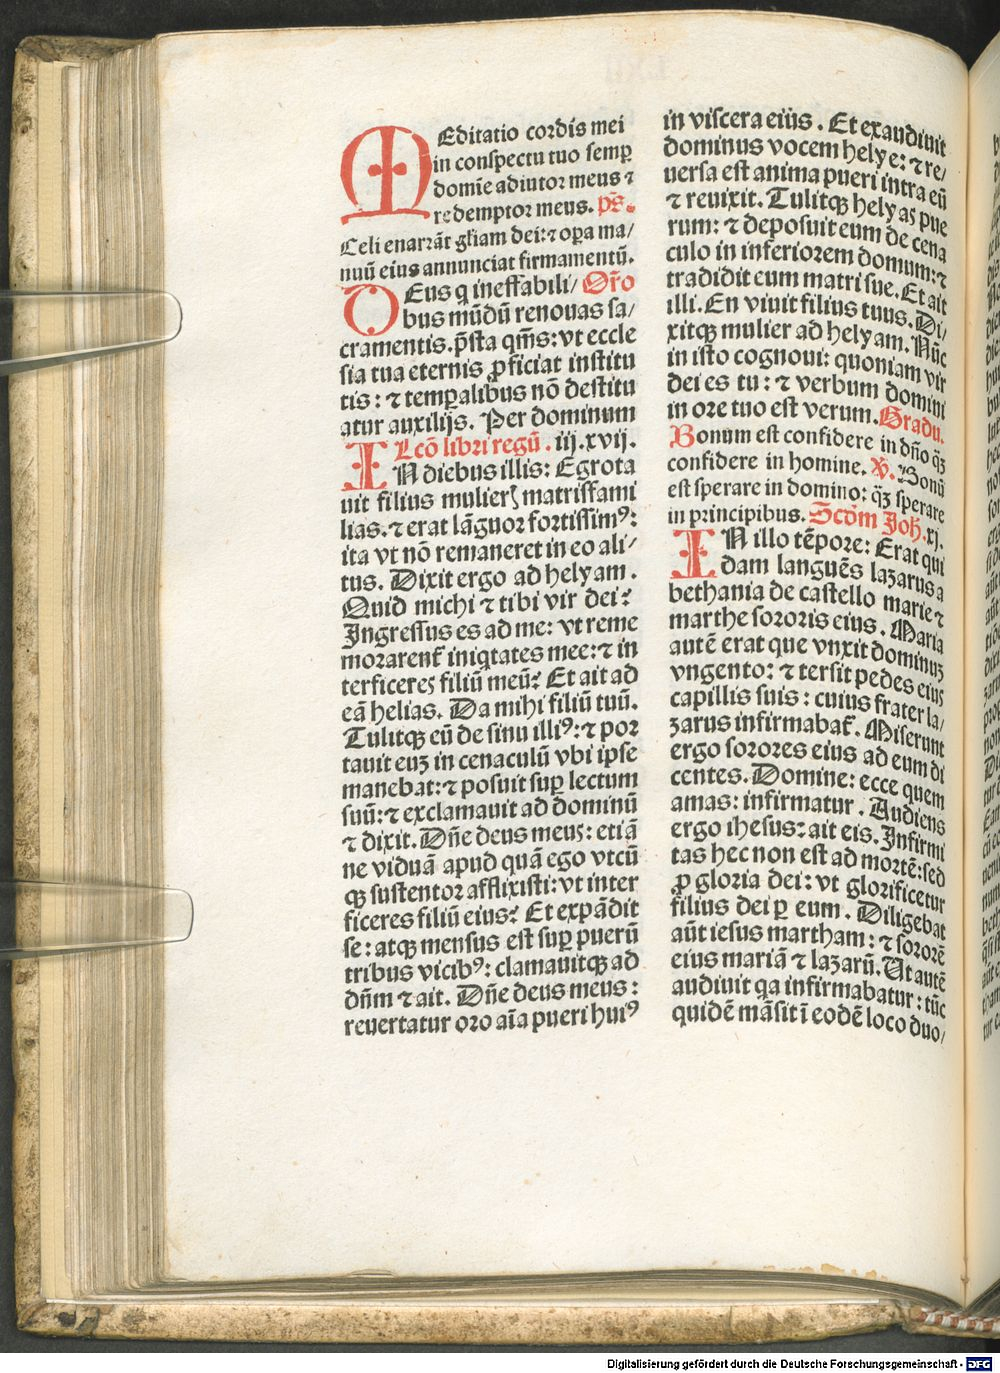 MEditatio cordis mei
in conspectu tuo semꝑ
domīe adiutor meus ⁊
redemptor meus. ps̄.
Celi enarrāt gl̄iam dei: ⁊ oꝑa ma/
nuū eius annunciat firmamentū.
DEus q ineffabili/ Or̄o
bus mūdū renouas sa/
cramentis. p̄sta qm̄s: vt eccle
sia tua eternis ꝓficiat institu
tis: ⁊ temꝑalibus nō destitu
atur auxilijs. Per dominum
Lcō libri regū. iij. xvij.
IN diebus illis: Egrota
uit filius mulierꝭ matriffami
lias. ⁊ erat lāguor fortissimꝰ:
ita vt nō remaneret in eo ali/
tus. Dixit ergo ad helyam.
Quid michi ⁊ tibi vir dei?
Ingressus es ad me: vt reme
morarent᷑ iniqtates mee: ⁊ in
terficeres filiū meū? Et ait ad
eā helias. Da mihi filiū tuū.
Tulitqꝫ eū de sinu illiꝰ: ⁊ por
tauit euꝫ in cenaculū vbi ipse
manebat: ⁊ posuit suꝑ lectum
suū: ⁊ exclamauit ad dominū
⁊ dixit. Dn̄e deus meus: etiā
ne viduā apud quā ego vtcū
qꝫ sustentor afflixisti: vt inter
ficeres filiū eius? Et expādit
se: atqꝫ mensus est suꝑ puerū
tribus vicibꝰ: clamauitqꝫ ad
dn̄m ⁊ ait. Dn̄e deus meus:
reuertatur oro aīa pueri huiꝰ
in viscera eiūs. Et exaudiuit
dominus vocem helye: ⁊ re/
uersa est anima pueri intra eū
⁊ reuixit. Tulitqꝫ helyas pue
rum: ⁊ deposuit eum de cena
culo in inferiorem domum: ⁊
tradidit eum matri sue. Et ait
illi. En viuit filius tuus. Di/
xitqꝫ mulier ad helyam. Nūc
in isto cognoui: quoniam vir
dei es tu: ⁊ verbum domini
in ore tuo est verum. Gradu.
Bonum est confidere in dn̄o qꝫ
confidere in homine. ℣. Bonū
est sperare in domino: qꝫ sperare
in principibus. Scd̄m Joh. xj.
IN illo tēpore: Erat qui
dam languēs lazarus a
bethania de castello marie ⁊
marthe sororis eius. Maria
autē erat que vnxit dominuꝫ
vngento: ⁊ tersit pedes eius
capillis suis: cuius frater la/
zarus infirmabat᷑. Miserunt
ergo sorores eius ad eum di
centes. Domine: ecce quem
amas: infirmatur. Audiens
ergo ihesus: ait eis. Infirmi
tas hec non est ad mortē: sed
ꝓ gloria dei: vt glorificetur
filius dei ꝑ eum. Diligebat
aūt iesus martham: ⁊ sororē
eius mariā ⁊ lazarū. Ut autē
audiuit qa infirmabatur: tūc
quidē māsit ī eodē loco duo/
Digitalisierung gefördert durch die Deutsche Forschungsgemeinschaft - DFG